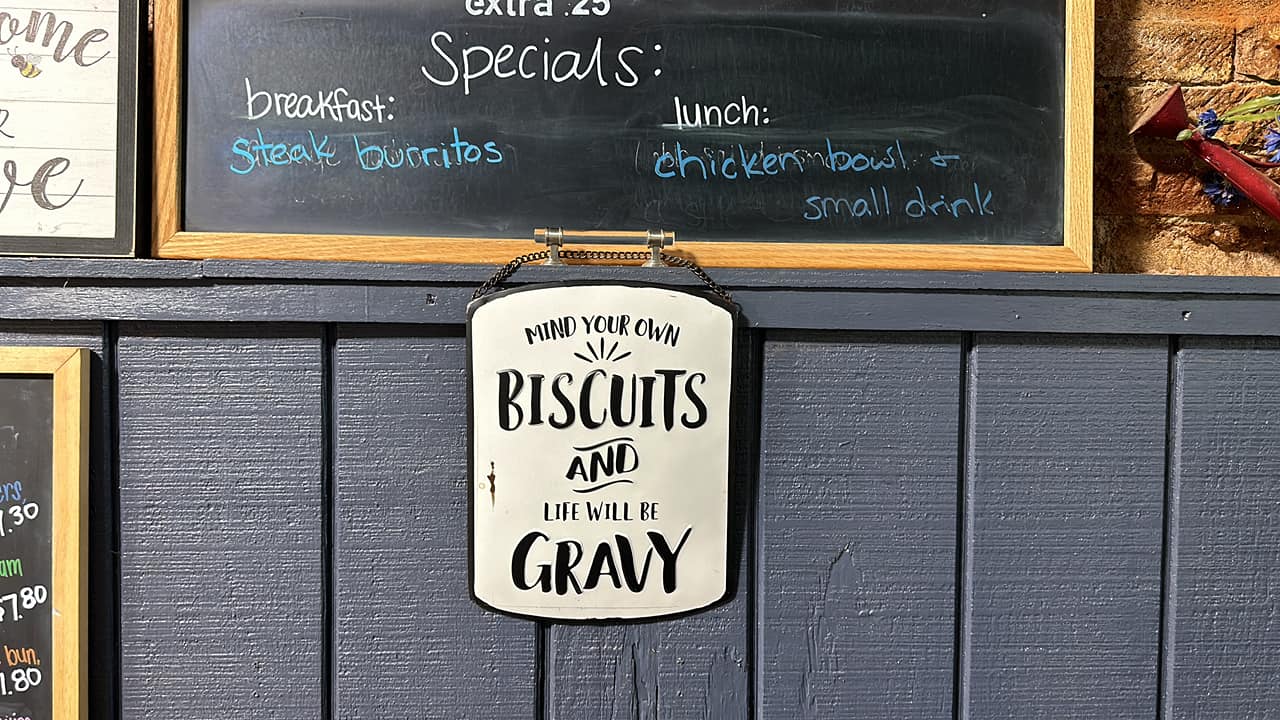 extra .25
Specials:
breakfast:
steak burritos
lunch:
chicken bowl +
small drink
MIND YOUR OWN
BISCUITS
AND
LIFE WILL BE
GRAVY
7.80
bun,